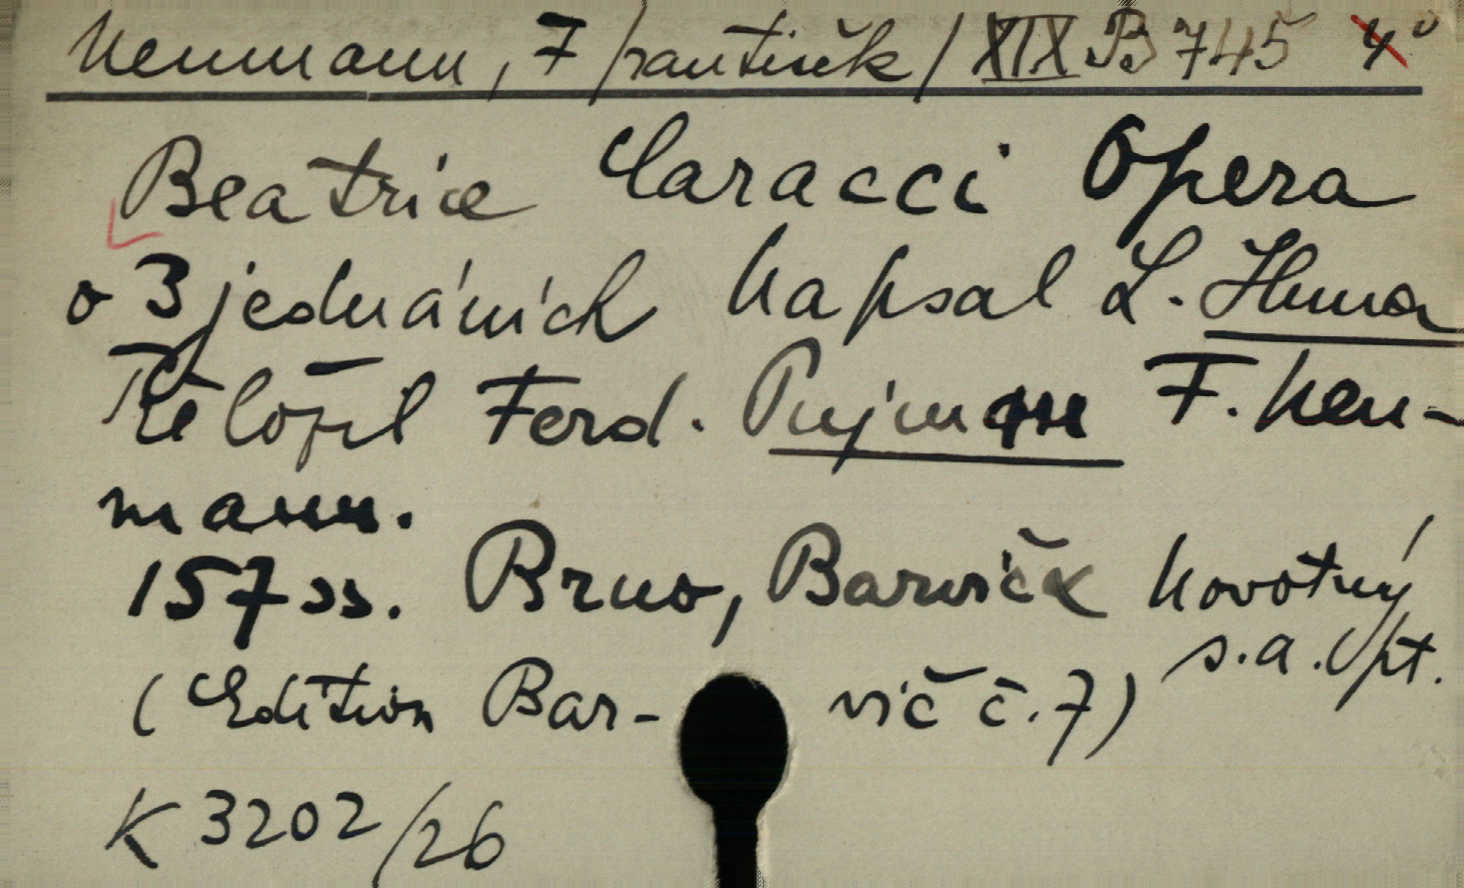 Neumann, F/rantišek/ XIX B 745 4°
Beatrice Caracci Opera
o 3 jednáních Napsal L. Illuna
Přeložil Ferd. Pujman F. Neu-
mann.
157 ss. Brno, Barvič & Novotný
s.a. Opt.
(Edition Bar- vič č. 7)
K 3202/26